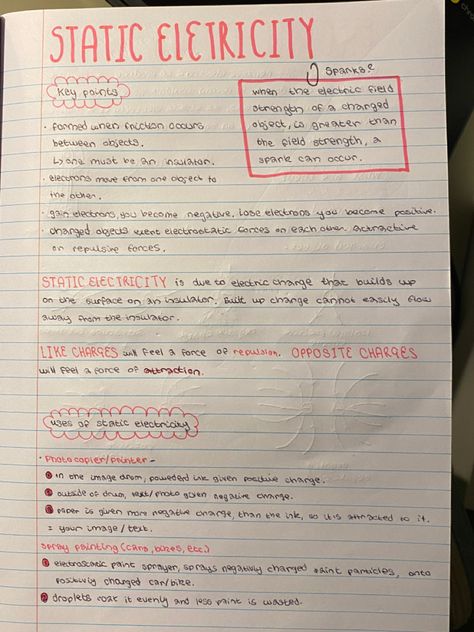 STATIC ELETRICITY
sparks?
key points
when the electric field
strength of a charged
object, is greater than
the field strength, a
spark can occur.
· formed when friction occurs
between objects.
↳ one must be an insulator.
· electrons move from one object to
the other.
· gain electrons, you become negative, lose electrons you become positive.
· charged objects exert electrostatic forces on each other. attractive
or repulsive forces.
STATIC ELECTRICITY is due to electric charge that builds up
on the surface on an insulator. Built up charge cannot easily flow
away from the insulator.
LIKE CHARGES will feel a force of repulsion. OPPOSITE CHARGES
will feel a force of attraction.
uses of static electricity
· Photocopier/printer -
in one image drum, powederd ink given positive charge.
outside of drum, text/photo given negative charge.
paper is given more negative charge, than the ink, so it is attracted to it.
= your image/text.
spray painting (cars, bikes, etc.)
electrostatic paint sprayer, sprays negativly charged paint particles, onto
positively charged car/bike.
droplets coat it evenly and less paint is wasted.